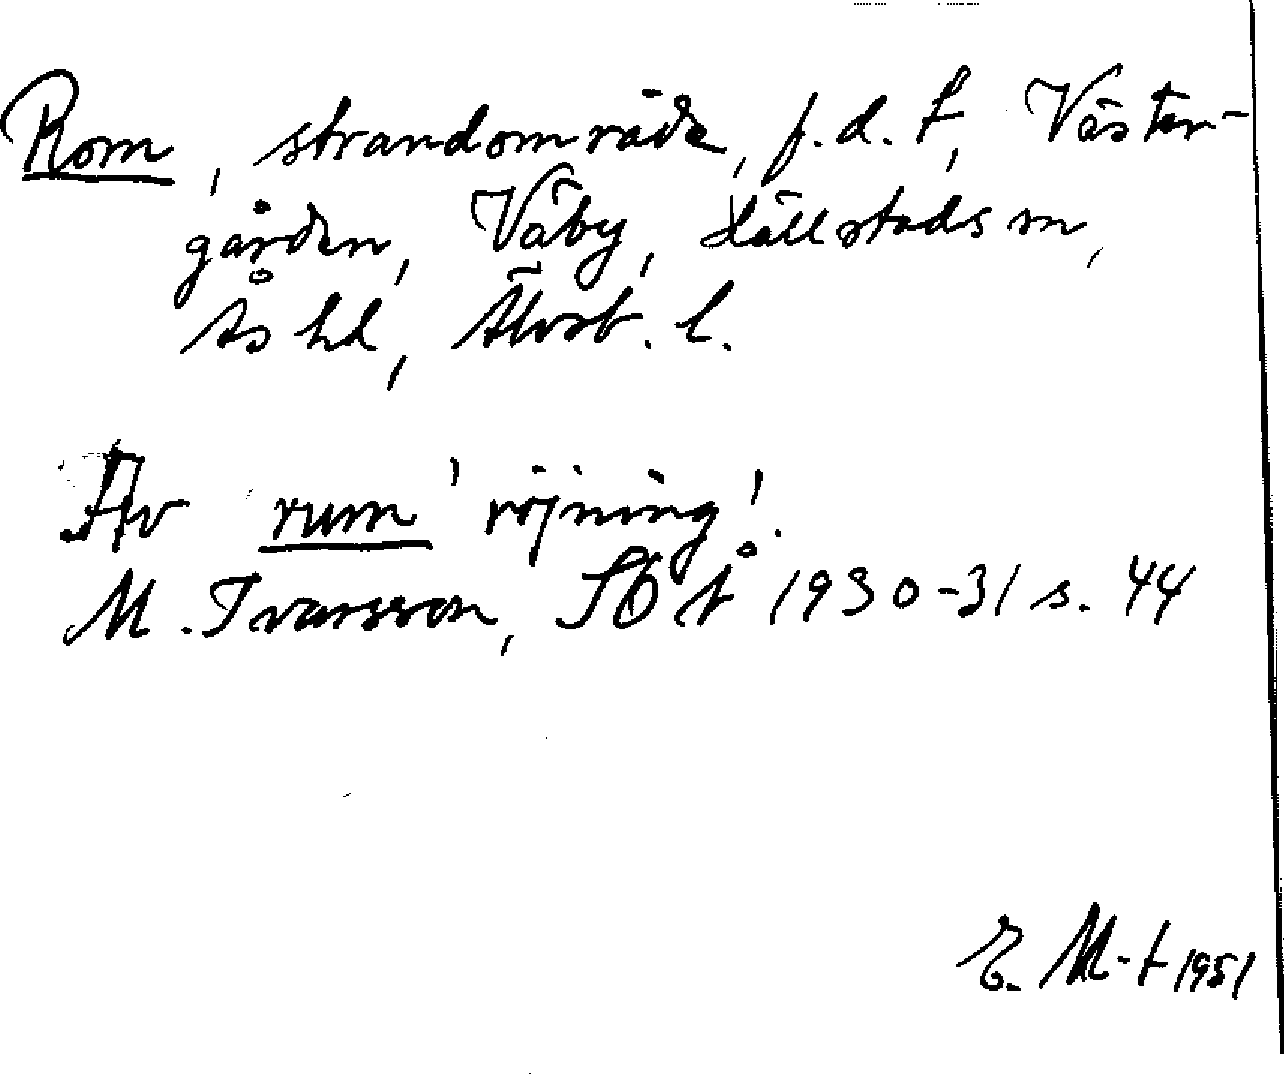 Rom, strandområde, f.d. t, Väster-
gården, Väby, Hällstads sn,
Ås hd, Älvsb. l.
Av rum 'röjning'.
M. Ivarsson, SOÅ 1930-31 s. 44
E. M-t 1951